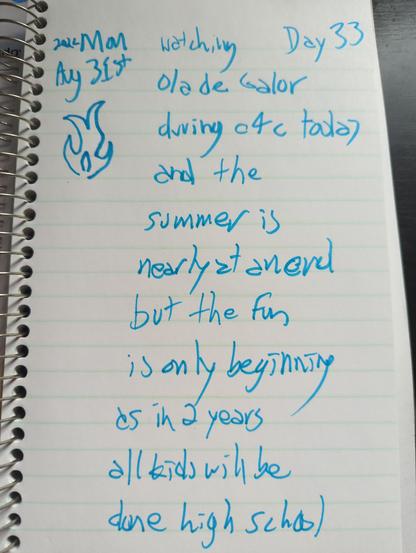 2026 Mon watching Day 33
Aug 31st Ola de Calor
during c4c today
and the
summer is
nearly at an end
but the fun
is only beginning
as in 2 years
all kids will be
done high school